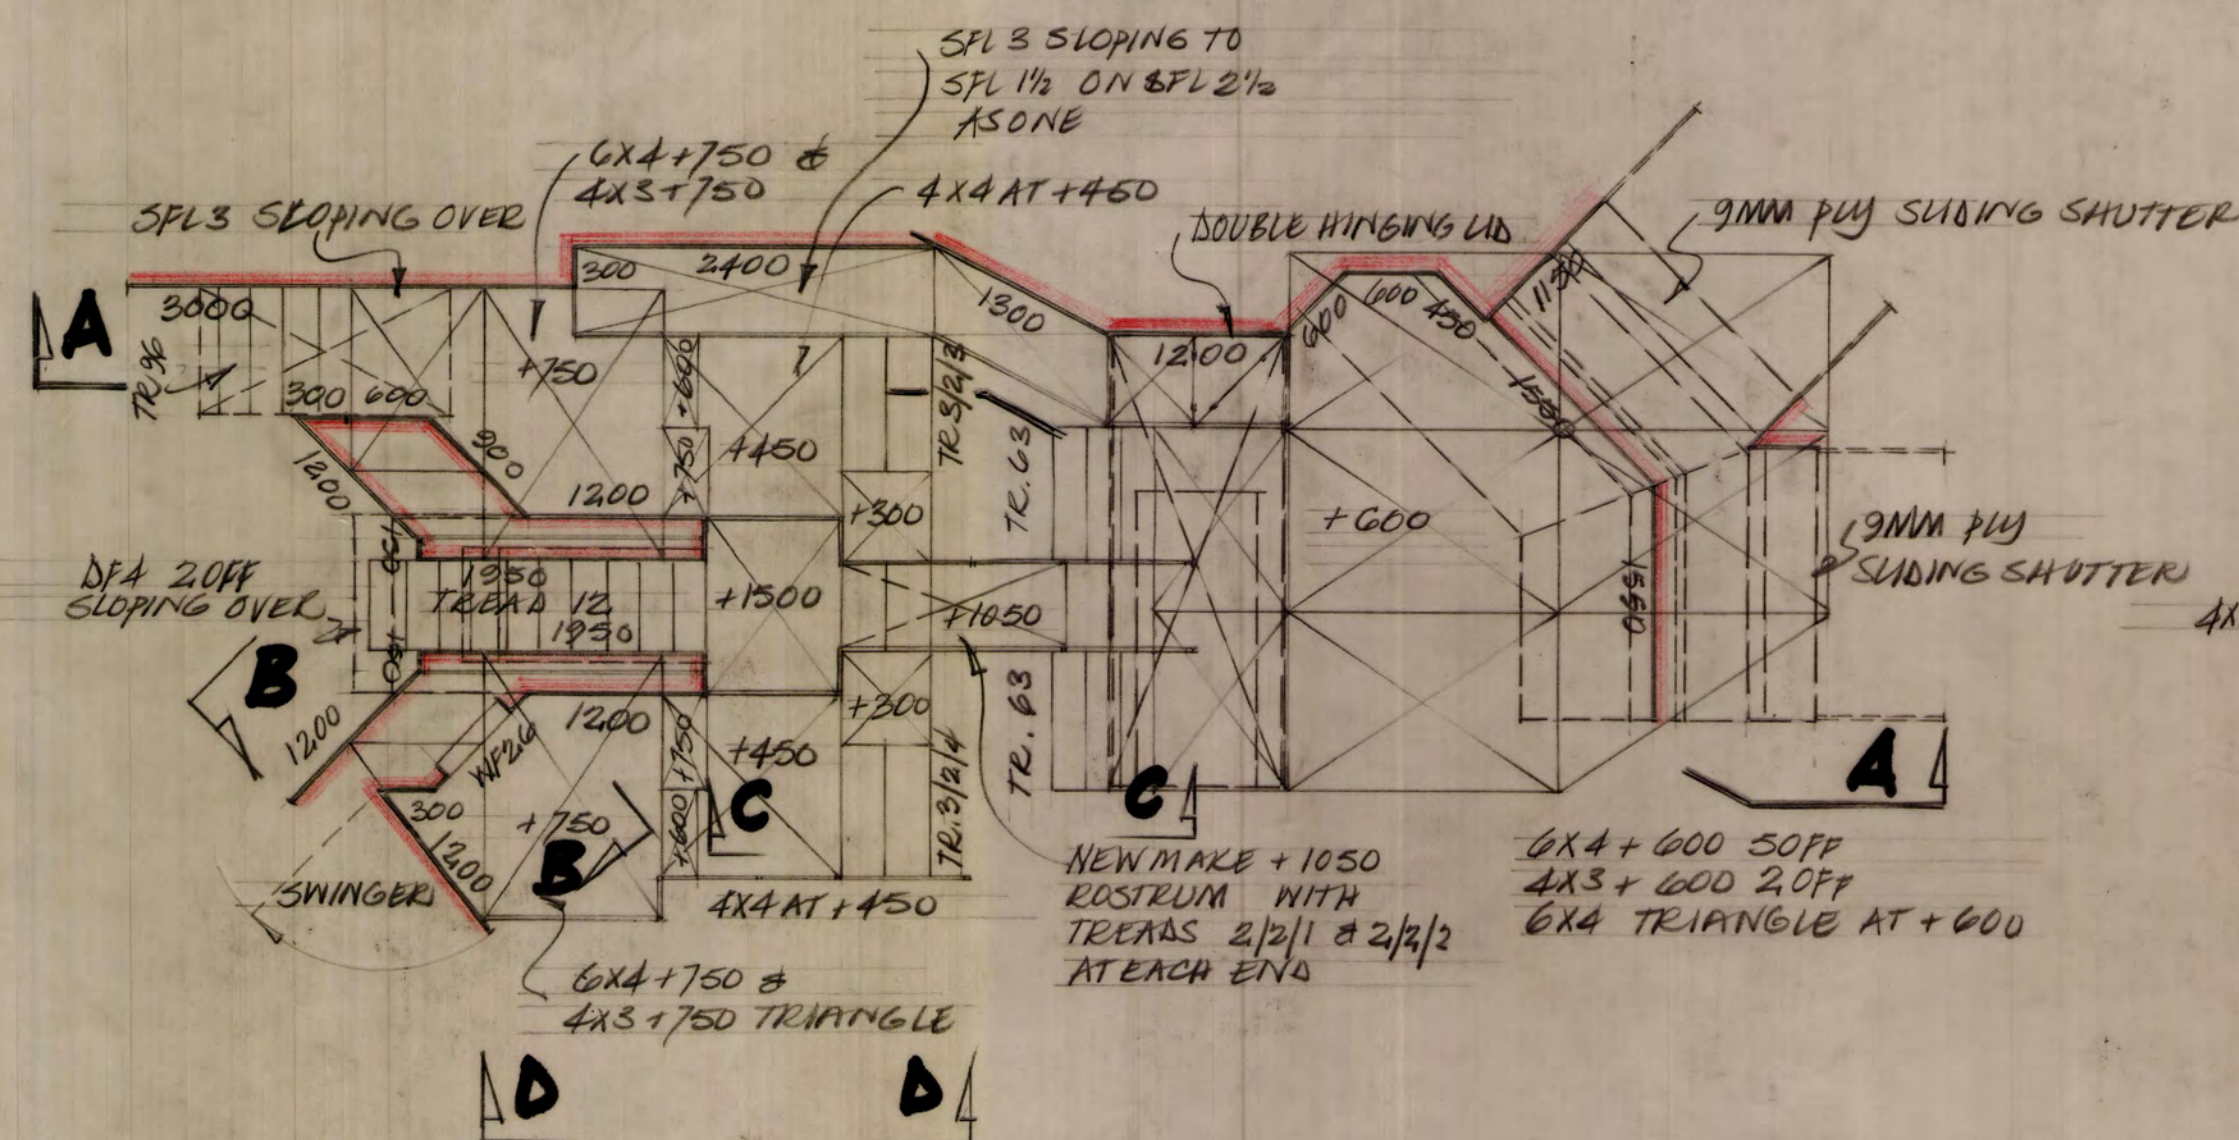 SFL 3 SLOPING TO
SFL 1½ ON SFL 2½
AS ONE
6X4+750 &
4X3+750
4X4 AT +450
SFL3 SLOPING OVER
DOUBLE HINGING LID
9MM PLY SLIDING SHUTTER
A
3000
TR96
300
2400
1300
600
600
450
1150
1200
1550
300 600
900
1200
+750
+600
+750
+450
1200
TR3/2/3
TR.63
+300
+600
9MM PLY
SLIDING SHUTTER
4X
DF4 2OFF
SLOPING OVER
450
450
1950
TREAD 12
1950
+1500
+1050
1550
B
1200
WF26
1200
+750
+600
+450
+300
TR.3/2/4
TR.63
C
C
A
300
1200
+750
B
SWINGER
4X4 AT +450
NEW MAKE +1050
ROSTRUM WITH
TREADS 2/2/1 & 2/2/2
AT EACH END
6X4 + 600 5OFF
4X3 + 600 2OFF
6X4 TRIANGLE AT +600
6X4+750 &
4X3+750 TRIANGLE
D
D